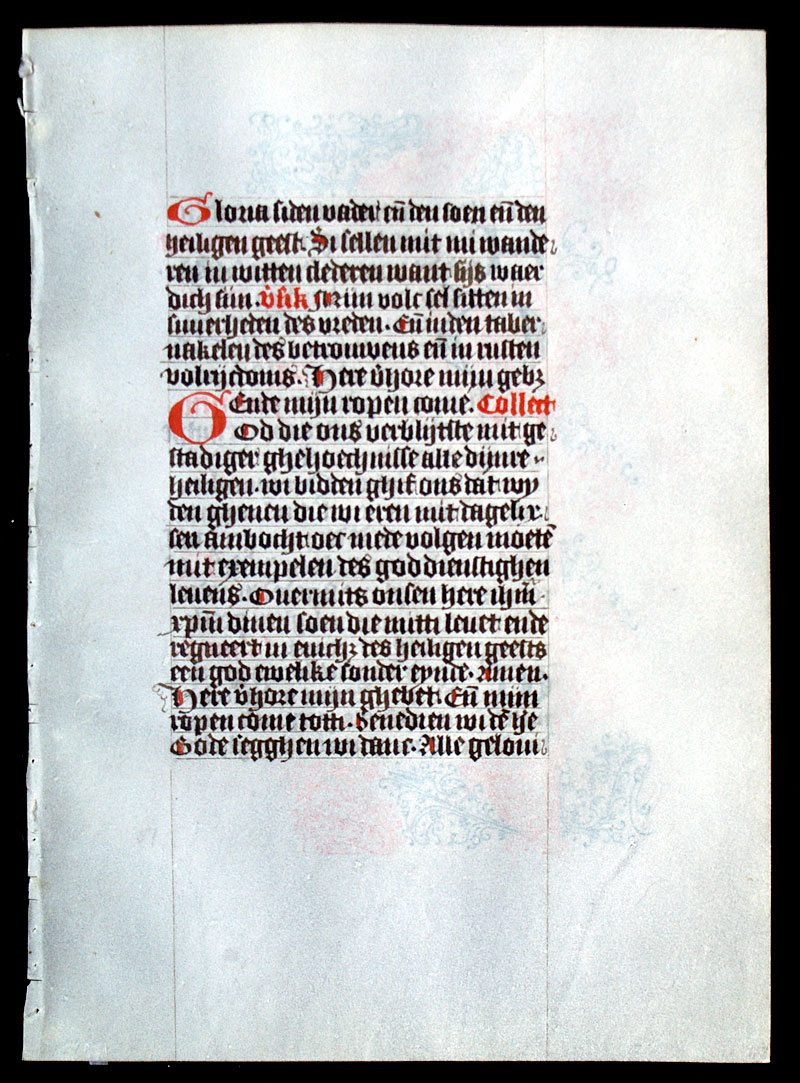 Gloria si den vader en̄ den soen en̄ den
heiligen geest. Si sellen mit mi wande
ren in witten clederen want sijs waer
dich sijn. v̄sik Mijn volc sel sitten in
suuerheden des vreden. En̄ in den taber
nakelen des betrouwens en̄ in rusten
volrijcdoms. Here v̄hore mijn gebꝫ
Ende mijn ropen come. Collect
God die ons verblijtste mit ge
stadiger ghehoechnisse alle dijnre
heiligen. wi bidden ghif ons dat wy
den ghenen die wi eren mit dagelix
sen ambocht oec mede volgen moetē
mit exempelen des goddienstighen
leuens. Ouermits onsen here ihm̄
xpm̄ dinen soen die mitti leuet ende
regneert in enichꝫ des heiligen geests
een god ewelike sonder eynde. Amen.
Here v̄hore mijn ghebet. En̄ mijn
ropen come totti. Benedien wi dē he
Gode segghen wi danc. Alle geloui